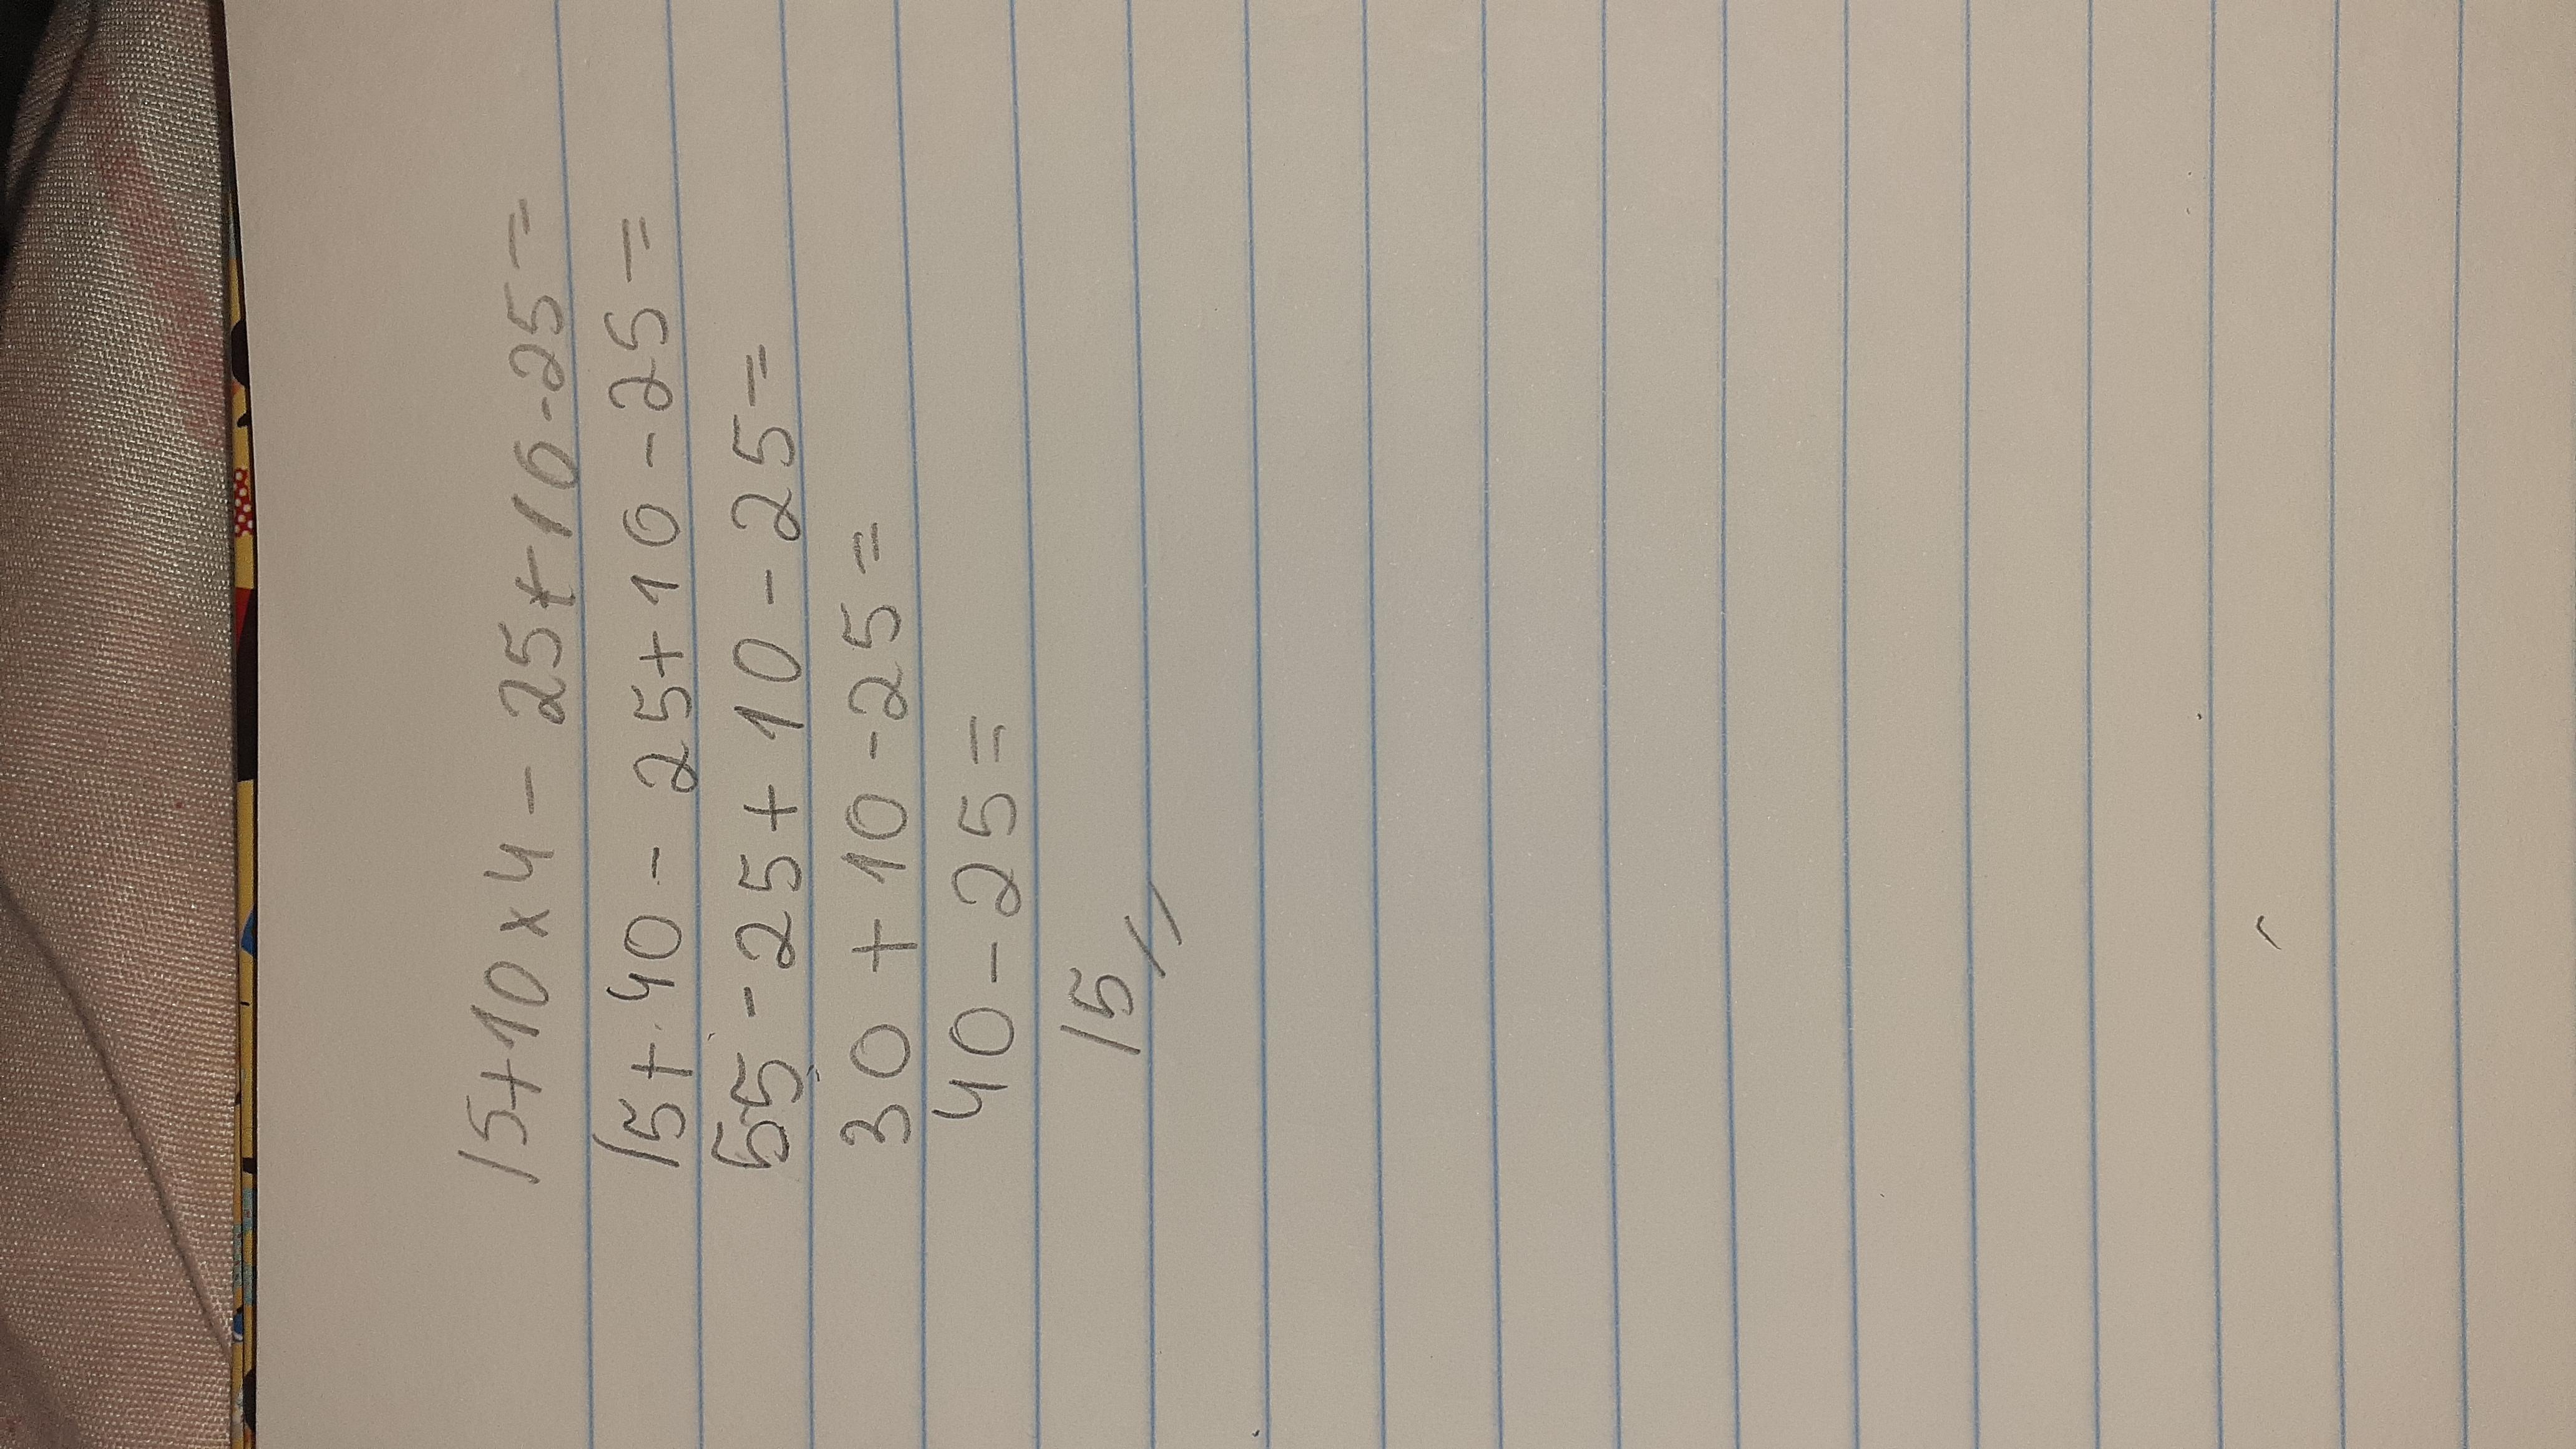 15+10x4-25+10-25=
15+40-25+10-25=
55-25+10-25=
30+10-25=
40-25=
15//